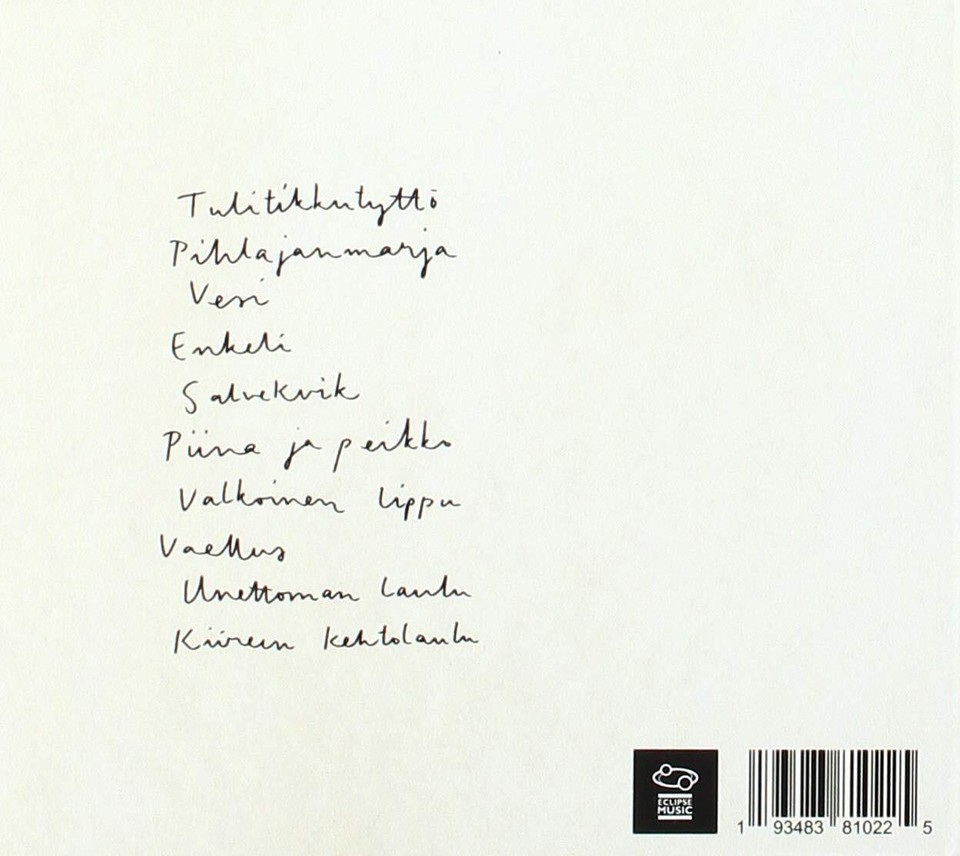 Tulitikkutyttö
Pihlajanmarja
Vesi
Enkeli
Salvekvik
Piina ja peikko
Valkoinen lippu
Vaellus
Unettoman laulu
Kiireen kehtolaulu
ECLIPSE
MUSIC
1 93483 81022 5